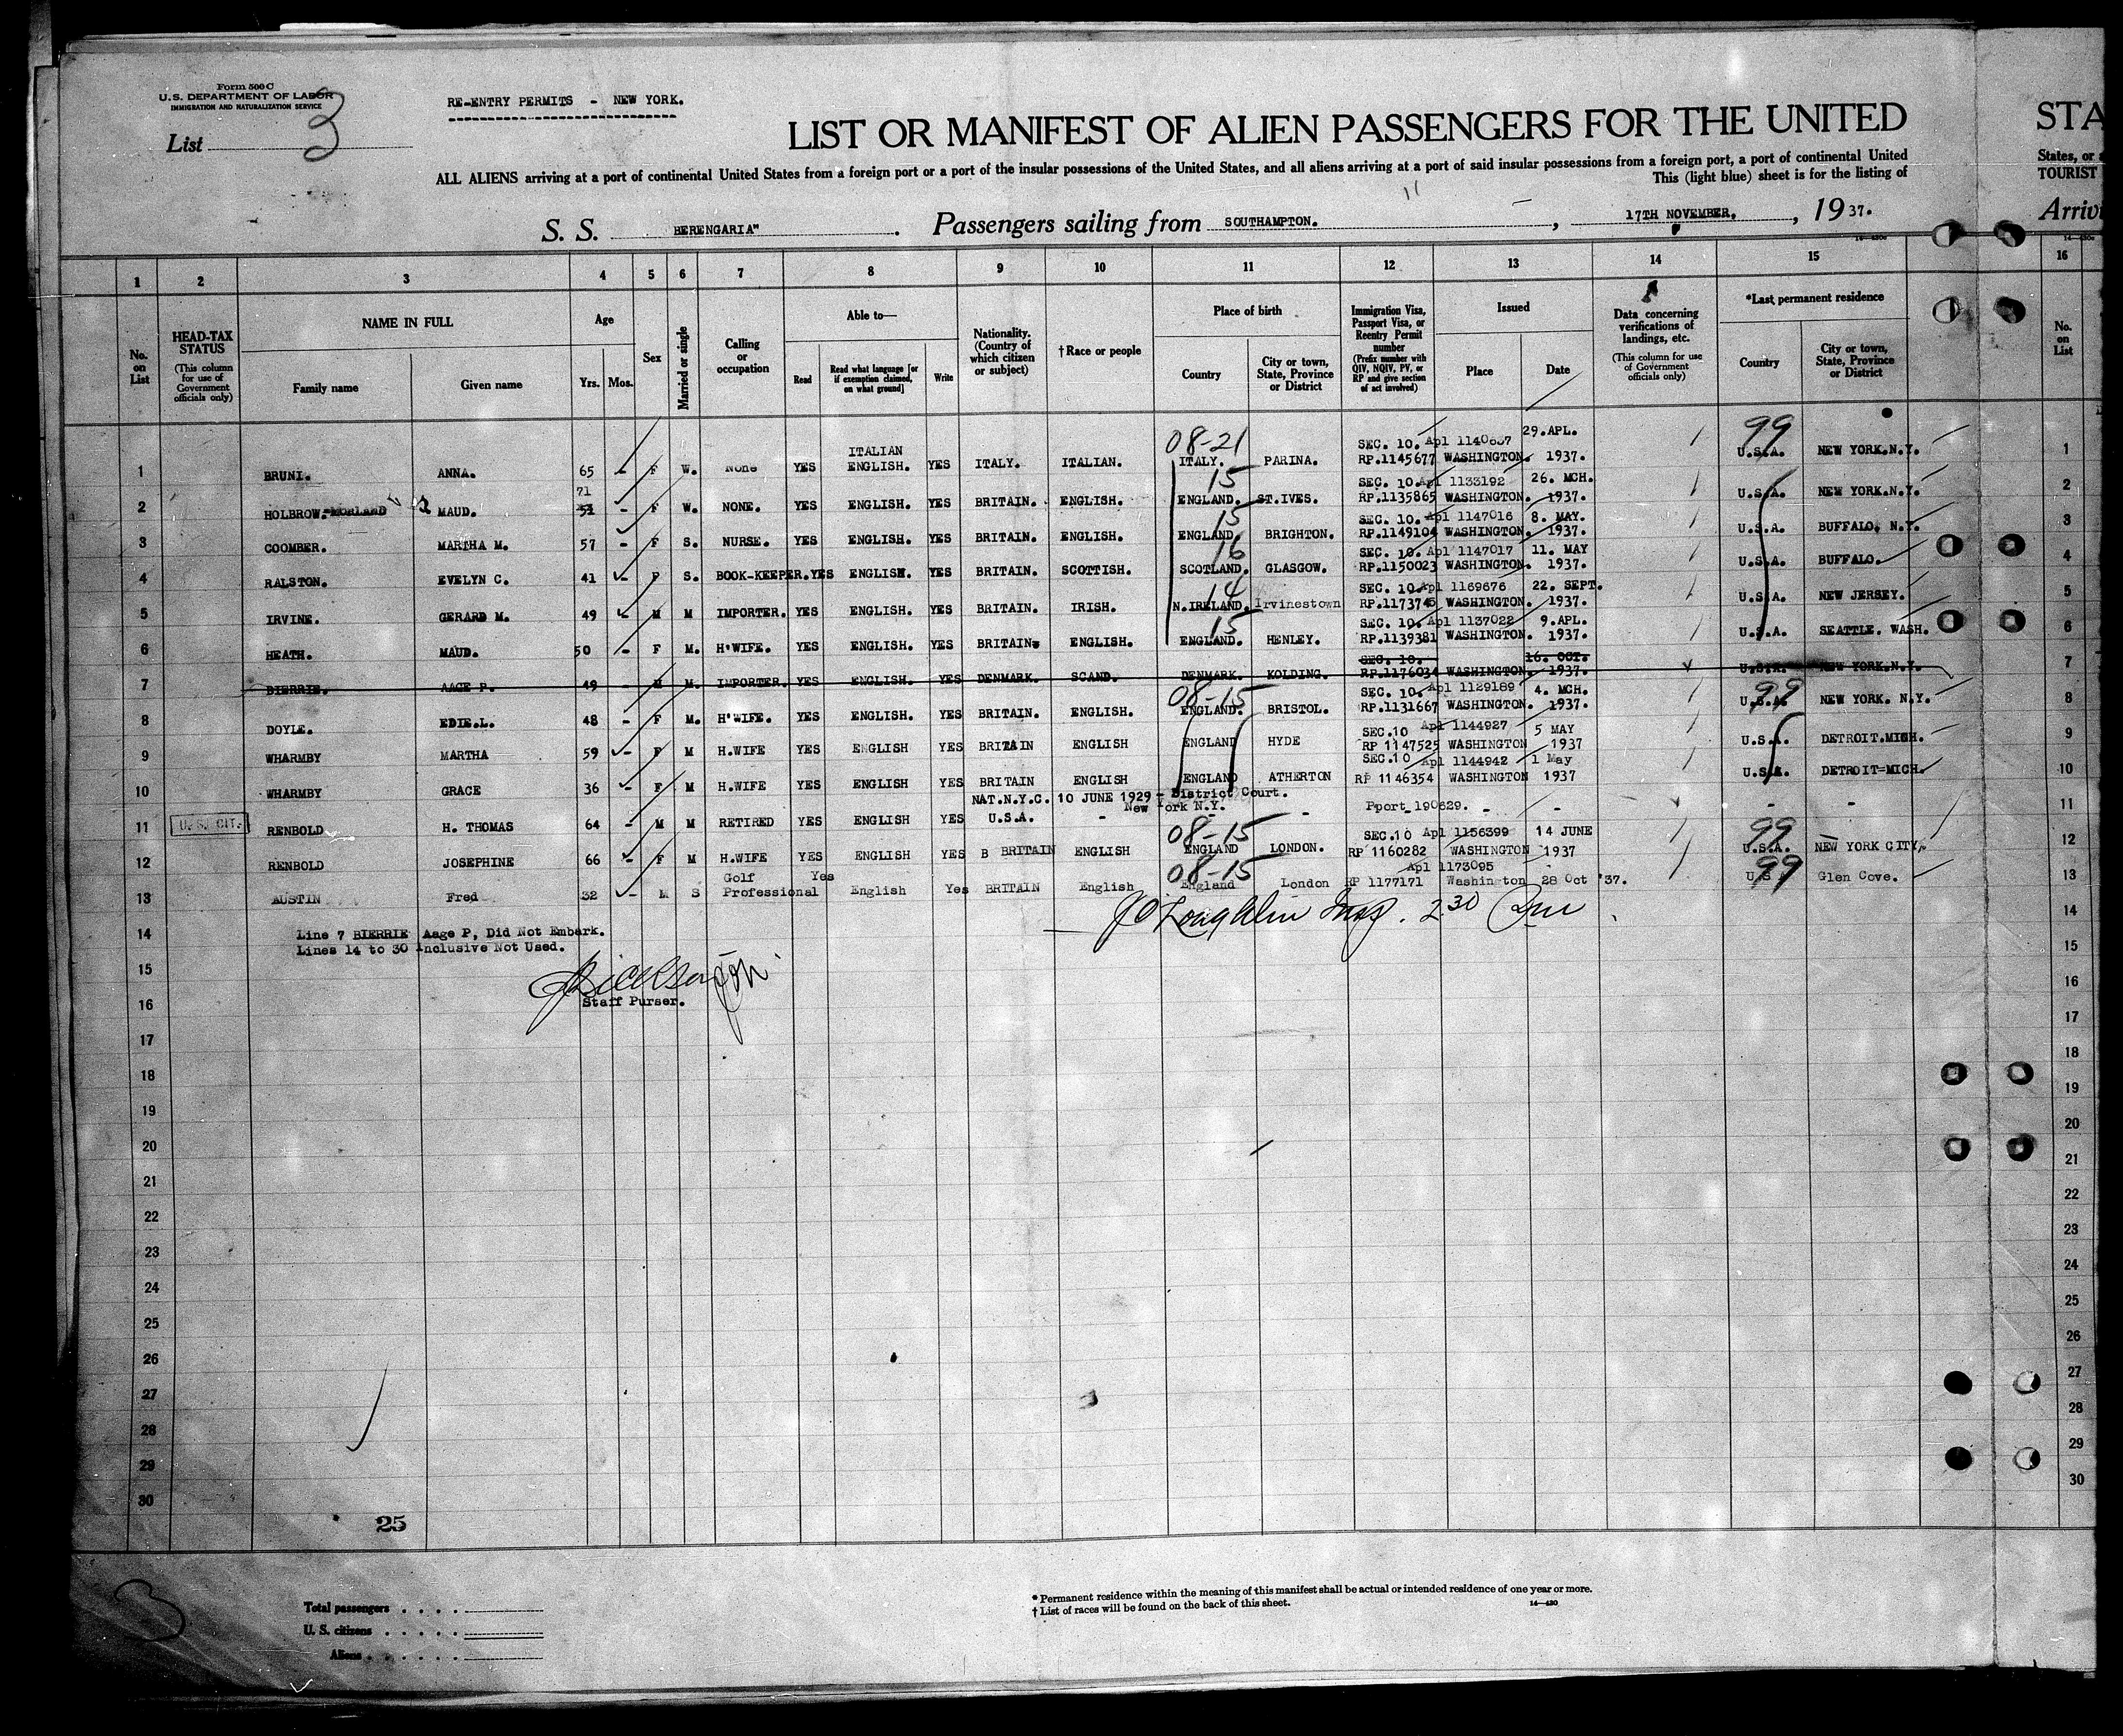 Form 500 C
U. S. DEPARTMENT OF LABOR
IMMIGRATION AND NATURALIZATION SERVICE
List 3
RE-ENTRY PERMITS - NEW YORK.
LIST OR MANIFEST OF ALIEN PASSENGERS FOR THE UNITED
STA
ALL ALIENS arriving at a port of continental United States from a foreign port or a port of the insular possessions of the United States, and all aliens arriving at a port of said insular possessions from a foreign port, a port of continental United
States, or a
This (light blue) sheet is for the listing of
TOURIST
S. S. BERENGARIA" . Passengers sailing from SOUTHAMPTON. , 17TH NOVEMBER, , 19 37.
Arriv
1 2 3 4 5 6 7 8 9 10 11 12 13 14 15 16
No. on List
HEAD-TAX STATUS
(This column for use of Government officials only)
NAME IN FULL
Family name
Given name
Age
Yrs. Mos.
Sex
Married or single
Calling or occupation
Able to—
Read
Read what language [or if exemption claimed, on what ground]
Write
Nationality. (Country of which citizen or subject)
† Race or people
Place of birth
Country
City or town, State, Province or District
Immigration Visa, Passport Visa, or Reentry Permit number
(Prefix number with QIV, NQIV, PV, or RP and give section of act involved)
Issued
Place
Date
Data concerning verifications of landings, etc.
(This column for use of Government officials only)
*Last permanent residence
Country
City or town, State, Province or District
No. on List
ITALIAN 08-21 SEC. 10. Apl 1140637 29. APL. 99
1 BRUNI. ANNA. 65 - F W. None YES ENGLISH. YES ITALY. ITALIAN. ITALY. PARINA. RP.1145677 WASHINGTON. 1937. U.S.A. NEW YORK.N.Y. 1
71 15 SEC. 10. Apl 1133192 26. MCH.
2 HOLBROW.-MORLAND 2 MAUD. 51 - F W. NONE. YES ENGLISH. YES BRITAIN. ENGLISH. ENGLAND. ST.IVES. RP.1135865 WASHINGTON. 1937. U.S.A. NEW YORK.N.Y. 2
15 SEC. 10. Apl 1147016 8. MAY.
3 COOMBER. MARTHA M. 57 - F S. NURSE. YES ENGLISH. YES BRITAIN. ENGLISH. ENGLAND. BRIGHTON. RP.1149104 WASHINGTON. 1937. U.S.A. BUFFALO. N.Y. 3
16 SEC. 10. Apl 1147017 11. MAY
4 RALSTON. EVELYN C. 41 - F S. BOOK-KEEPER. YES ENGLISH. YES BRITAIN. SCOTTISH. SCOTLAND. GLASGOW. RP.1150023 WASHINGTON. 1937. U.S.A. BUFFALO. 4
14 SEC. 10. Apl 1169676 22. SEPT.
5 IRVINE. GERARD M. 49 M M IMPORTER. YES ENGLISH. YES BRITAIN. IRISH. N.IRELAND. Irvinestown RP.1173745 WASHINGTON. 1937. U.S.A. NEW JERSEY. 5
15 SEC. 10. Apl 1137022 9. APL.
6 HEATH. MAUD. 50 - F M. H'WIFE. YES ENGLISH. YES BRITAIN. ENGLISH. ENGLAND. HENLEY. RP.1139381 WASHINGTON. 1937. U.S.A. SEATTLE. WASH. 6
SEC. 10. 16. OCT.
7 BIERRIE. AAGE P. 49 - M M. IMPORTER. YES ENGLISH. YES DENMARK. SCAND. DENMARK. KOLDING. RP.1176034 WASHINGTON. 1937. U.S.A. NEW YORK.N.Y. 7
08-15 SEC. 10. Apl 1129189 4. MCH. 99
8 DOYLE. EDIE.L. 48 - F M. H'WIFE. YES ENGLISH. YES BRITAIN. ENGLISH. ENGLAND. BRISTOL. RP.1131667 WASHINGTON. 1937. U.S.A. NEW YORK. N.Y. 8
SEC.10 Apl 1144927 5 MAY
9 WHARMBY MARTHA 59 - F M H.WIFE YES ENGLISH YES BRITAIN ENGLISH ENGLAND HYDE RP 1147525 WASHINGTON 1937 U.S.A. DETROIT.MICH. 9
SEC.10 Apl 1144942 1 May
10 WHARMBY GRACE 36 - F M H.WIFE YES ENGLISH YES BRITAIN ENGLISH ENGLAND ATHERTON RP 1146354 WASHINGTON 1937 U.S.A. DETROIT=MICH. 10
NAT.N.Y.C. 10 JUNE 1929 - District Court.
New York N.Y.
11 U. S. CIT. RENBOLD H. THOMAS 64 - M M RETIRED YES ENGLISH YES U.S.A. - - - Pport 190629. - - - - 11
08-15 SEC.10 Apl 1156399 14 JUNE 99
12 RENBOLD JOSEPHINE 66 - F M H.WIFE YES ENGLISH YES B BRITAIN ENGLISH ENGLAND LONDON. RP 1160282 WASHINGTON 1937 U.S.A. NEW YORK CITY. 12
Golf Yes 08-15 Apl 1173095 99
13 AUSTIN Fred 32 - M S Professional English Yes BRITAIN English England London RP 1177171 Washington 28 Oct '37. U.S. Glen Cove. 13
14 Line 7 BIERRIE Aage P, Did Not Embark. 14
Lines 14 to 30 Inclusive Not Used.
Insp. 2 30 Pm
15 15
Staff Purser.
16 16
17 17
18 18
19 19
20 20
21 21
22 22
23 23
24 24
25 25
26 26
27 27
28 28
29 29
30 30
25
3
Total passengers
U. S. citizens
Aliens
* Permanent residence within the meaning of this manifest shall be actual or intended residence of one year or more.
† List of races will be found on the back of this sheet.
14—430